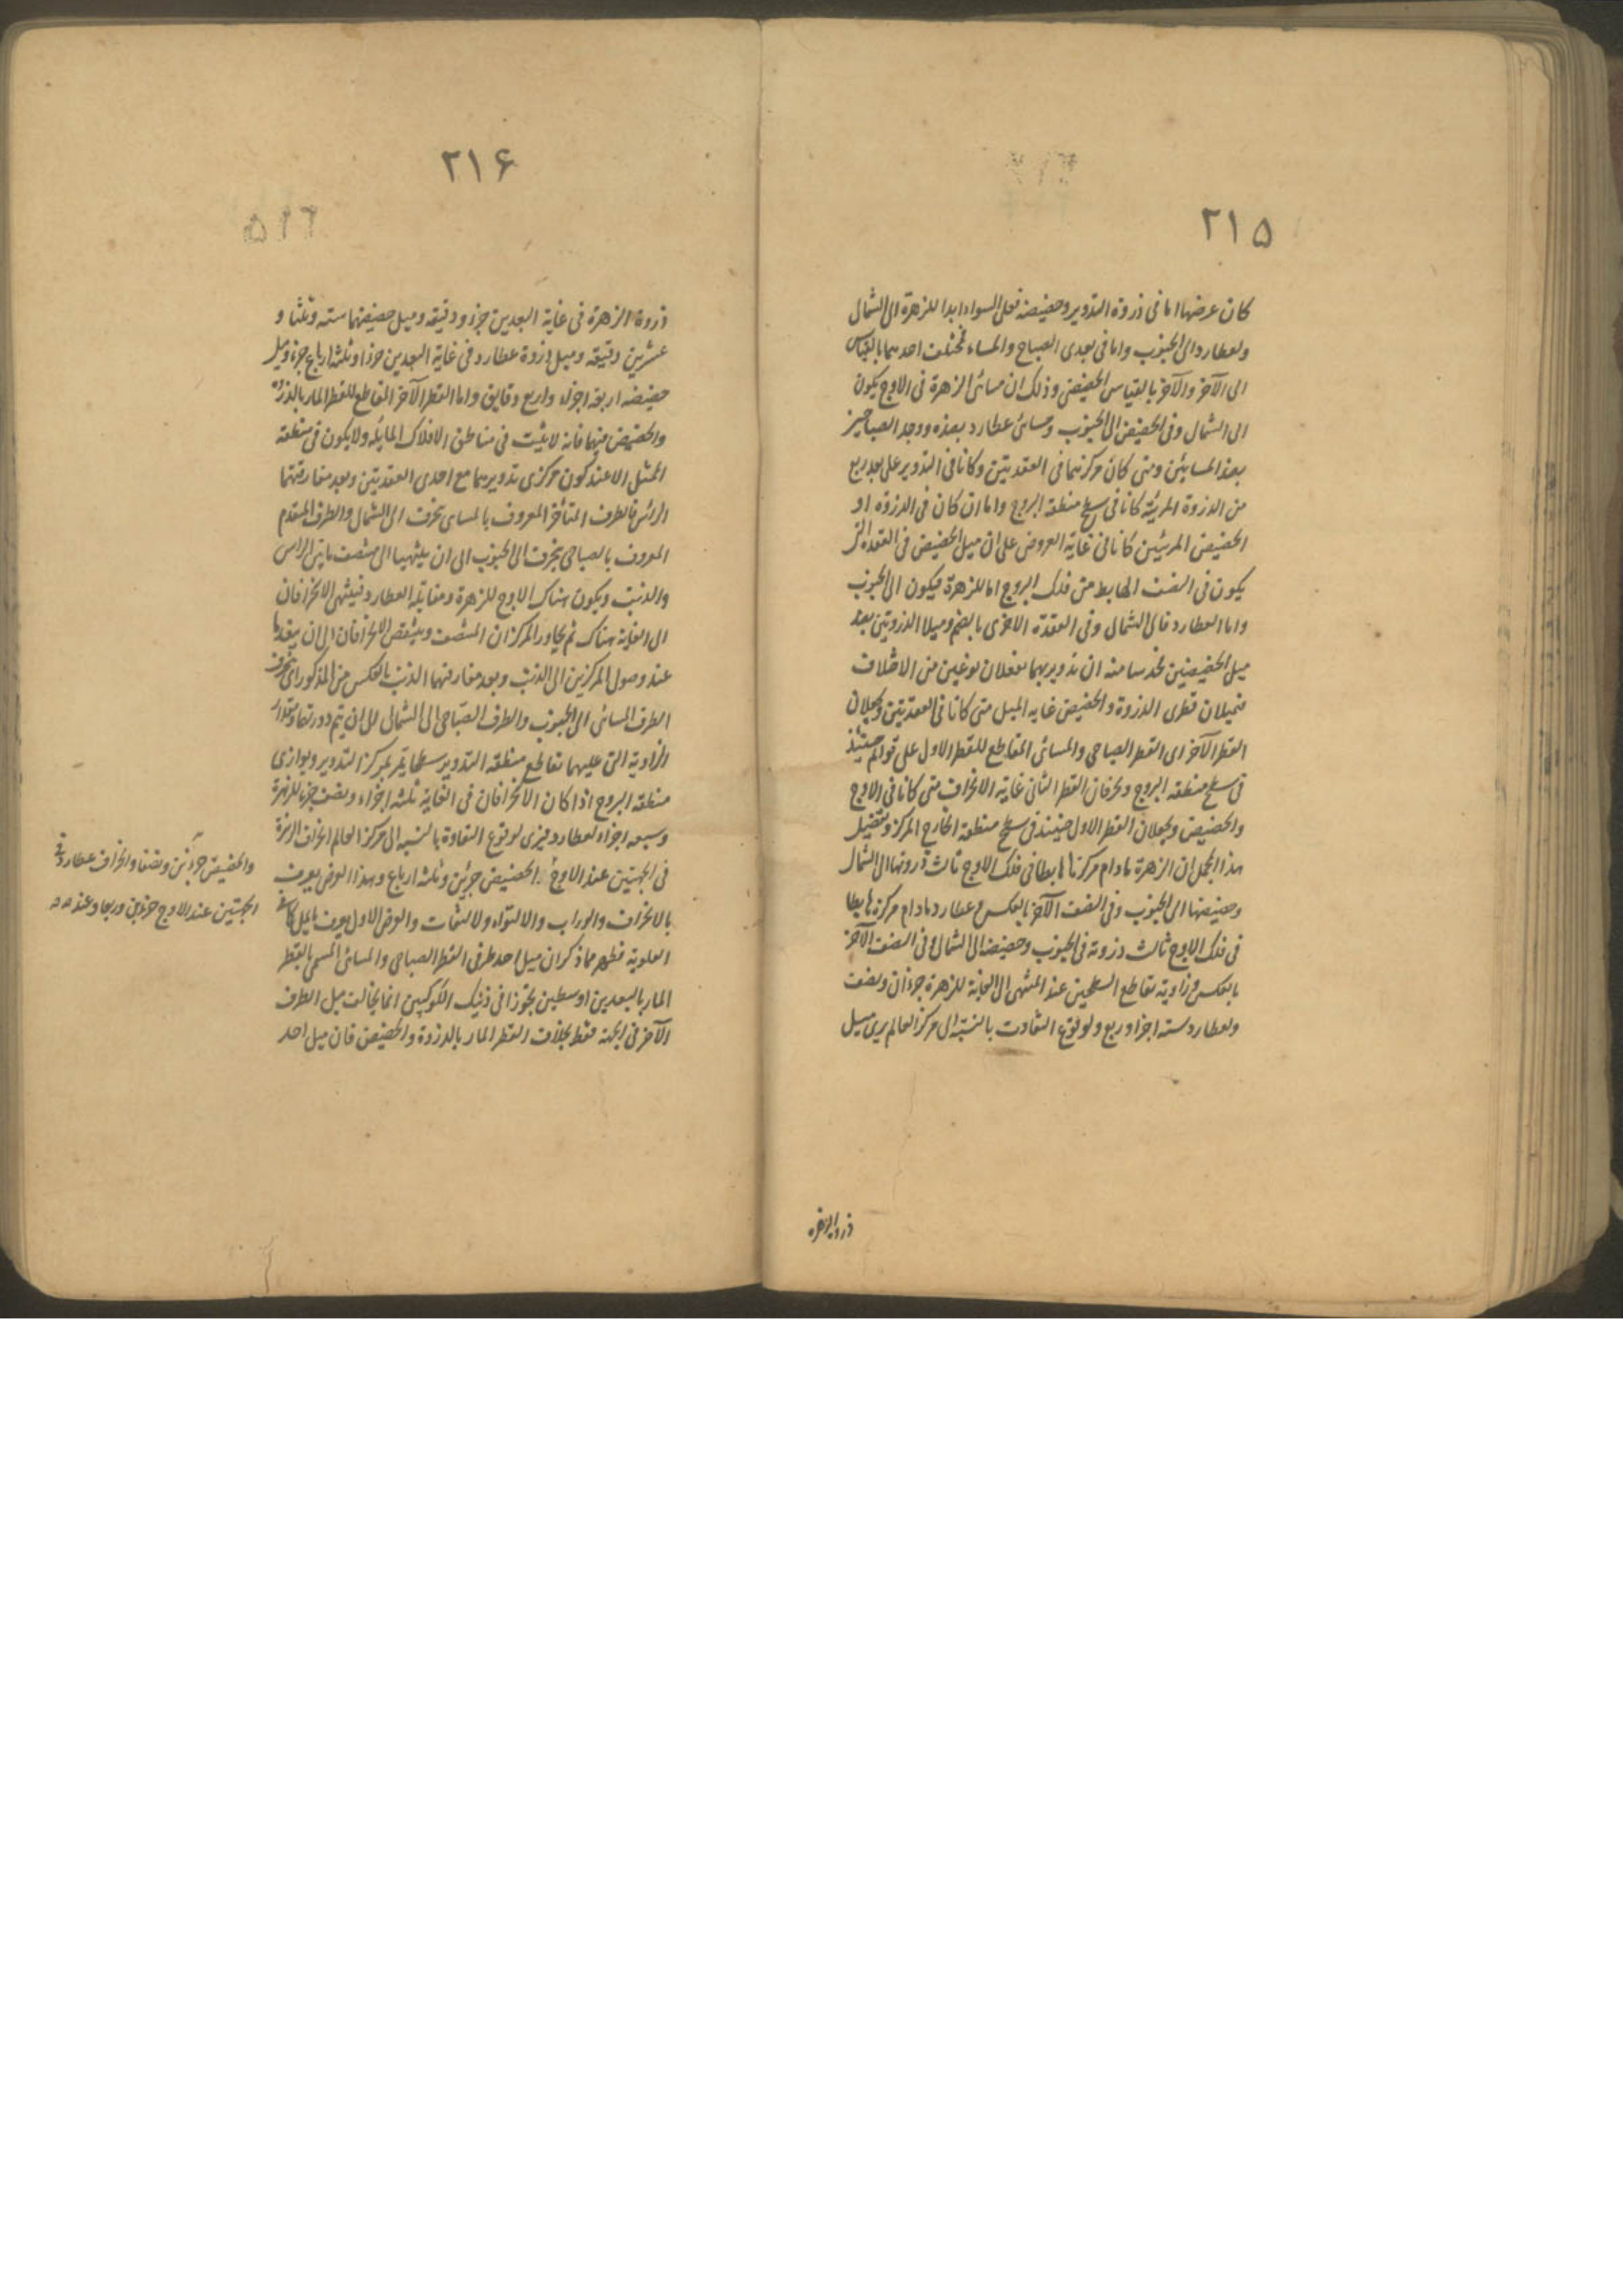 ۲۱۵
كان عرضها اما فى ذروة التدوير وحضيضه فعلى السواء ابدا للزهرة الى الشمال
ولعطارد الى الجنوب واما فى بعدى الصباح والمساء فمختلف احدهما بالقياس
الى الآخر والآخر بالقياس الحضيض وذلك ان مسائى الزهرة فى الاوج يكون
الى الشمال وفى الحضيض الى الجنوب ومسائى عطارد بضده ووجد الصباحيين
بضد المسائين ومتى كان مركزهما فى العقدتين وكانا فى التدوير على بعد ربع
من الذروة المرئية كانا فى سطح منطقة البروج واما ان كان فى الذروة او
الحضيض المرئيين كانا فى غاية العروض على ان ميل الحضيض فى العقدة التى
يكون فى النصف الهابط من فلك البروج اما للزهرة فيكون الى الجنوب
واما لعطارد فالى الشمال وفى العقدة الاخرى بالضد وميلا الذروتين بضد
ميل الحضيضين فحدسا منه ان تدويريهما يفعلان نوعين من الاختلاف
فيميلان قطرى الذروة والحضيض غاية الميل متى كانا فى العقدتين ويجعلان
القطر الآخر اى القطر الصباحى والمسائى المقاطع للقطر الاول على قوائم حينئذ
فى سطح منطقة البروج ويحرفان القطر الثانى غاية الانحراف متى كانا فى الاوج
والحضيض ويجعلان القطر الاول حينئذ فى سطح منطقة الخارج المركز وتفصيل
هذا المجمل ان الزهرة مادام مركزها هابطا فى فلك الاوج ثالث ذروتها الى الشمال
وحضيضها الى الجنوب وفى النصف الآخر بالعكس وعطارد مادام مركزه هابطا
فى فلك الاوج ثالث ذروته فى الجنوب وحضيضه الى الشمال وفى النصف الآخر
بالعكس وزاوية تقاطع السطحين عند المنتهى الى الغاية للزهرة جزءان ونصف
ولعطارد ستة اجزاء وربع ولوقوع التفاوت بالنسبة الى مركز العالم يرى ميل
ذروة الزهرة
۲۱۶
ذروة الزهرة فى غاية البعدين جزء ودقيقة وميل حضيضها ستة وثلثا و
عشرين دقيقة وميل ذروة عطارد فى غاية البعدين جزءا وثلثة ارباع جزء وميل
حضيضه اربعة اجزاء واربع دقايق واما القطر الآخر المقاطع للقطر المار بالذروة
والحضيض منهما فانه لا يثبت فى مناطق الافلاك المايلة ولا يكون فى منطقة
الممثل الا عند كون مركزى تدويريهما مع احدى العقدتين وبعد مفارقتهما
الراس فالطرف المتأخر المعروف بالمسائى ينحرف الى الشمال والطرف المتقدم
المعروف بالصباحى ينحرف الى الجنوب الى ان ينتهيا الى منتصف ما بين الراس
والذنب ويكون هناك الاوج للزهرة ومقابله لعطارد فينتهى الانحرافان
الى الغاية هناك ثم يجاوز المركزان المنتصف وينتقص الانحرافان الى ان ينعدما
عند وصول المركزين الى الذنب وبعد مفارقتهما الذنب بالعكس من المذكور اى ينحرف
الطرف المسائى الى الجنوب والطرف الصباحى الى الشمال الى ان يتم دورتها ومقدار
الزاوية التى عليها تقاطع منطقة التدوير سطحا يمر بمركز التدوير ويوازى
منطقة البروج اذا كان الانحرافان فى الغاية ثلثة اجزاء ونصف جزء للزهرة
وسبعة اجزاء لعطارد فيرى لوقوع التفاوت بالنسبة الى مركز العالم انحراف الزهرة
فى الجهتين عند الاوج الحضيض جزئين وثلثة ارباع وهذا العرض يعرف
بالانحراف والوراب والالتواء والالتفات والعرض الاول يعرف بالميل كما فى
العلوية فظهر مما ذكر ان ميل احد طرفى القطر الصباحى والمسائى المسمى بالقطر
المار بالبعدين اوسطين تجوزا فى ذينك الكوكبين انما يخالف ميل الطرف
الآخر فى الجهة فقط بخلاف القطر المار بالذروة والحضيض فان ميل احد
والحضيض جزئين ونصفا وانحراف عطارد فى
الجهتين عند الاوج جزئين وربعا وعند